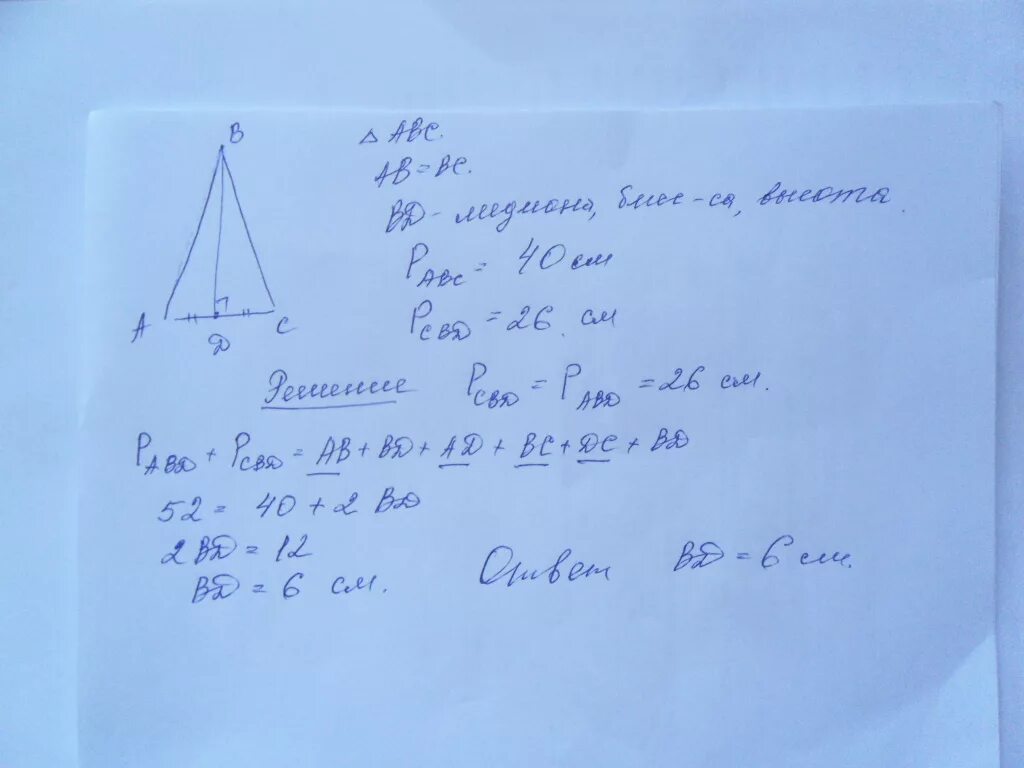 B
A
D
C
△ ABC.
AB = BC.
BD - медиана, бисс-са, высота
P ABC = 40 см
P CBD = 26 см
Решение P CBD = P ABD = 26 см.
P ABD + P CBD = AB + BD + AD + BC + DC + BD
52 = 40 + 2 BD
2 BD = 12
BD = 6 см.
Ответ BD = 6 см.